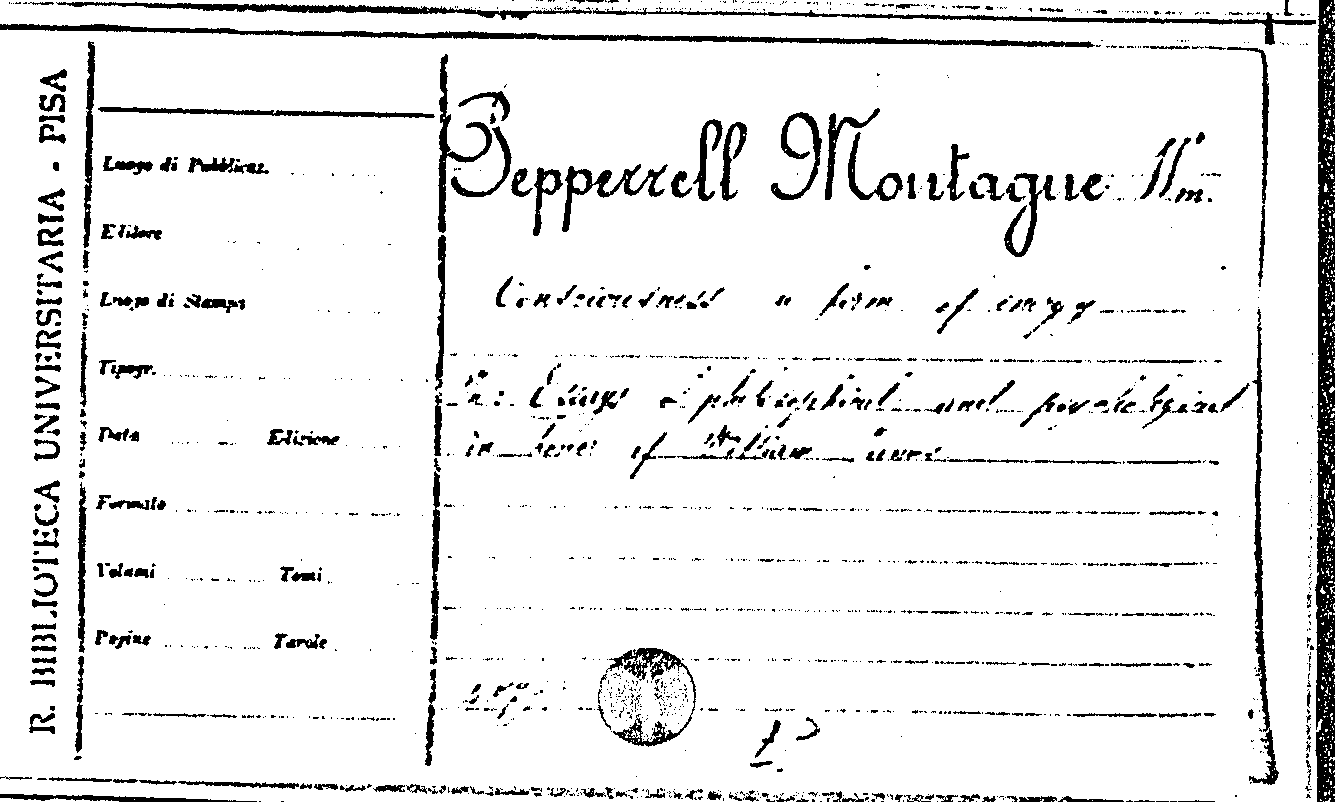 R. BIBLIOTECA UNIVERSITARIA - PISA
Luogo di Pubblicaz.
Editore
Luogo di Stampa
Tipogr.
Data Edizione
Formato
Volumi Tomi
Pagine Tavole
Pepperrell Montague Wm.
Consciousness a form of energy
In: Essays philosophical and psychological
in honor of William James